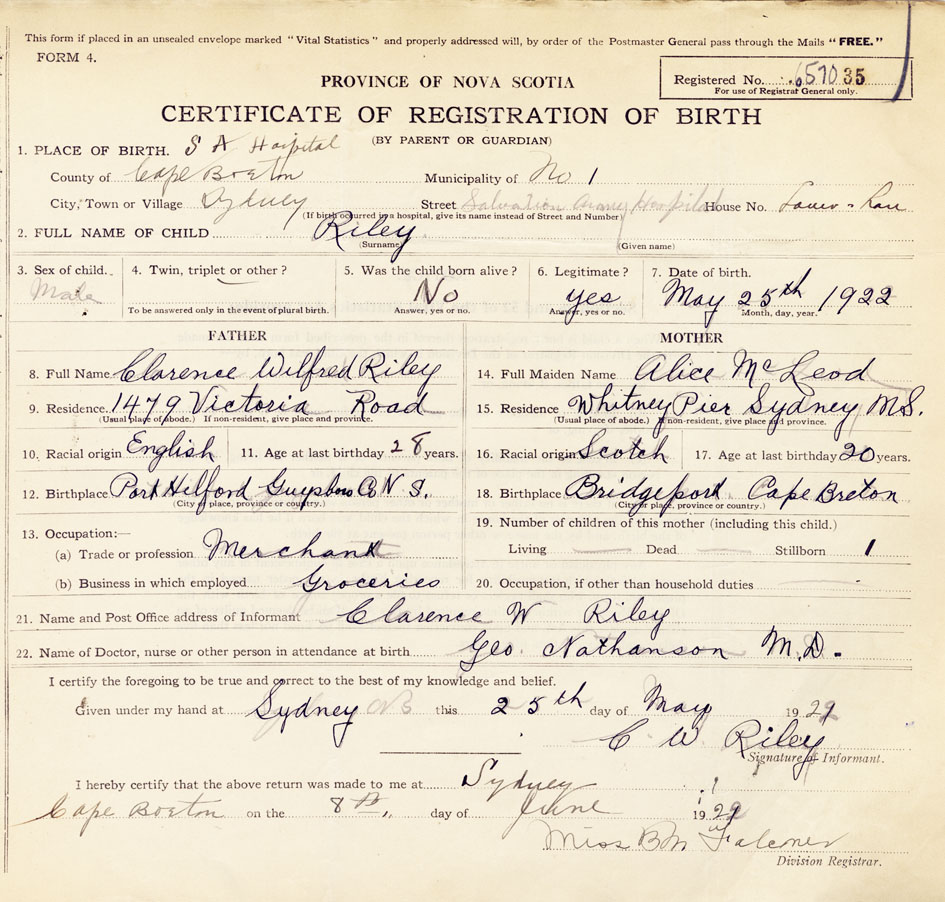 This form if placed in an unsealed envelope marked "Vital Statistics" and properly addressed will, by order of the Postmaster General pass through the Mails "FREE."
FORM 4.
PROVINCE OF NOVA SCOTIA
Registered No. 657035
For use of Registrar General only.
CERTIFICATE OF REGISTRATION OF BIRTH
(BY PARENT OR GUARDIAN)
1. PLACE OF BIRTH. S A Hospital
County of Cape Breton Municipality of No 1
City, Town or Village Sydney Street Salvation Army Hospital House No.
(If birth occurred in a hospital, give its name instead of Street and Number)
2. FULL NAME OF CHILD Riley
(Surname) (Given name)
3. Sex of child. 4. Twin, triplet or other? 5. Was the child born alive? 6. Legitimate? 7. Date of birth.
Male No yes May 25th 1922
To be answered only in the event of plural birth. Answer, yes or no. Answer, yes or no. Month, day, year.
FATHER MOTHER
8. Full Name Clarence Wilfred Riley 14. Full Maiden Name Alice McLeod
9. Residence 1479 Victoria Road 15. Residence Whitney Pier Sydney N.S.
(Usual place of abode.) If non-resident, give place and province. (Usual place of abode.) If non-resident, give place and province.
10. Racial origin English 11. Age at last birthday 28 years. 16. Racial origin Scotch 17. Age at last birthday 20 years.
12. Birthplace Port Hilford Guysboro Co N.S. 18. Birthplace Bridgeport Cape Breton
(City or place, province or country.) (City or place, province or country.)
13. Occupation:— 19. Number of children of this mother (including this child.)
(a) Trade or profession Merchant Living — Dead — Stillborn 1
(b) Business in which employed Groceries 20. Occupation, if other than household duties
21. Name and Post Office address of Informant Clarence W Riley
22. Name of Doctor, nurse or other person in attendance at birth Geo. Nathanson M.D.
I certify the foregoing to be true and correct to the best of my knowledge and belief.
Given under my hand at Sydney NS this 25th day of May 1922
C W Riley
Signature of Informant.
I hereby certify that the above return was made to me at Sydney
Cape Breton on the 8th day of June 1922
Miss B M Falconer
Division Registrar.